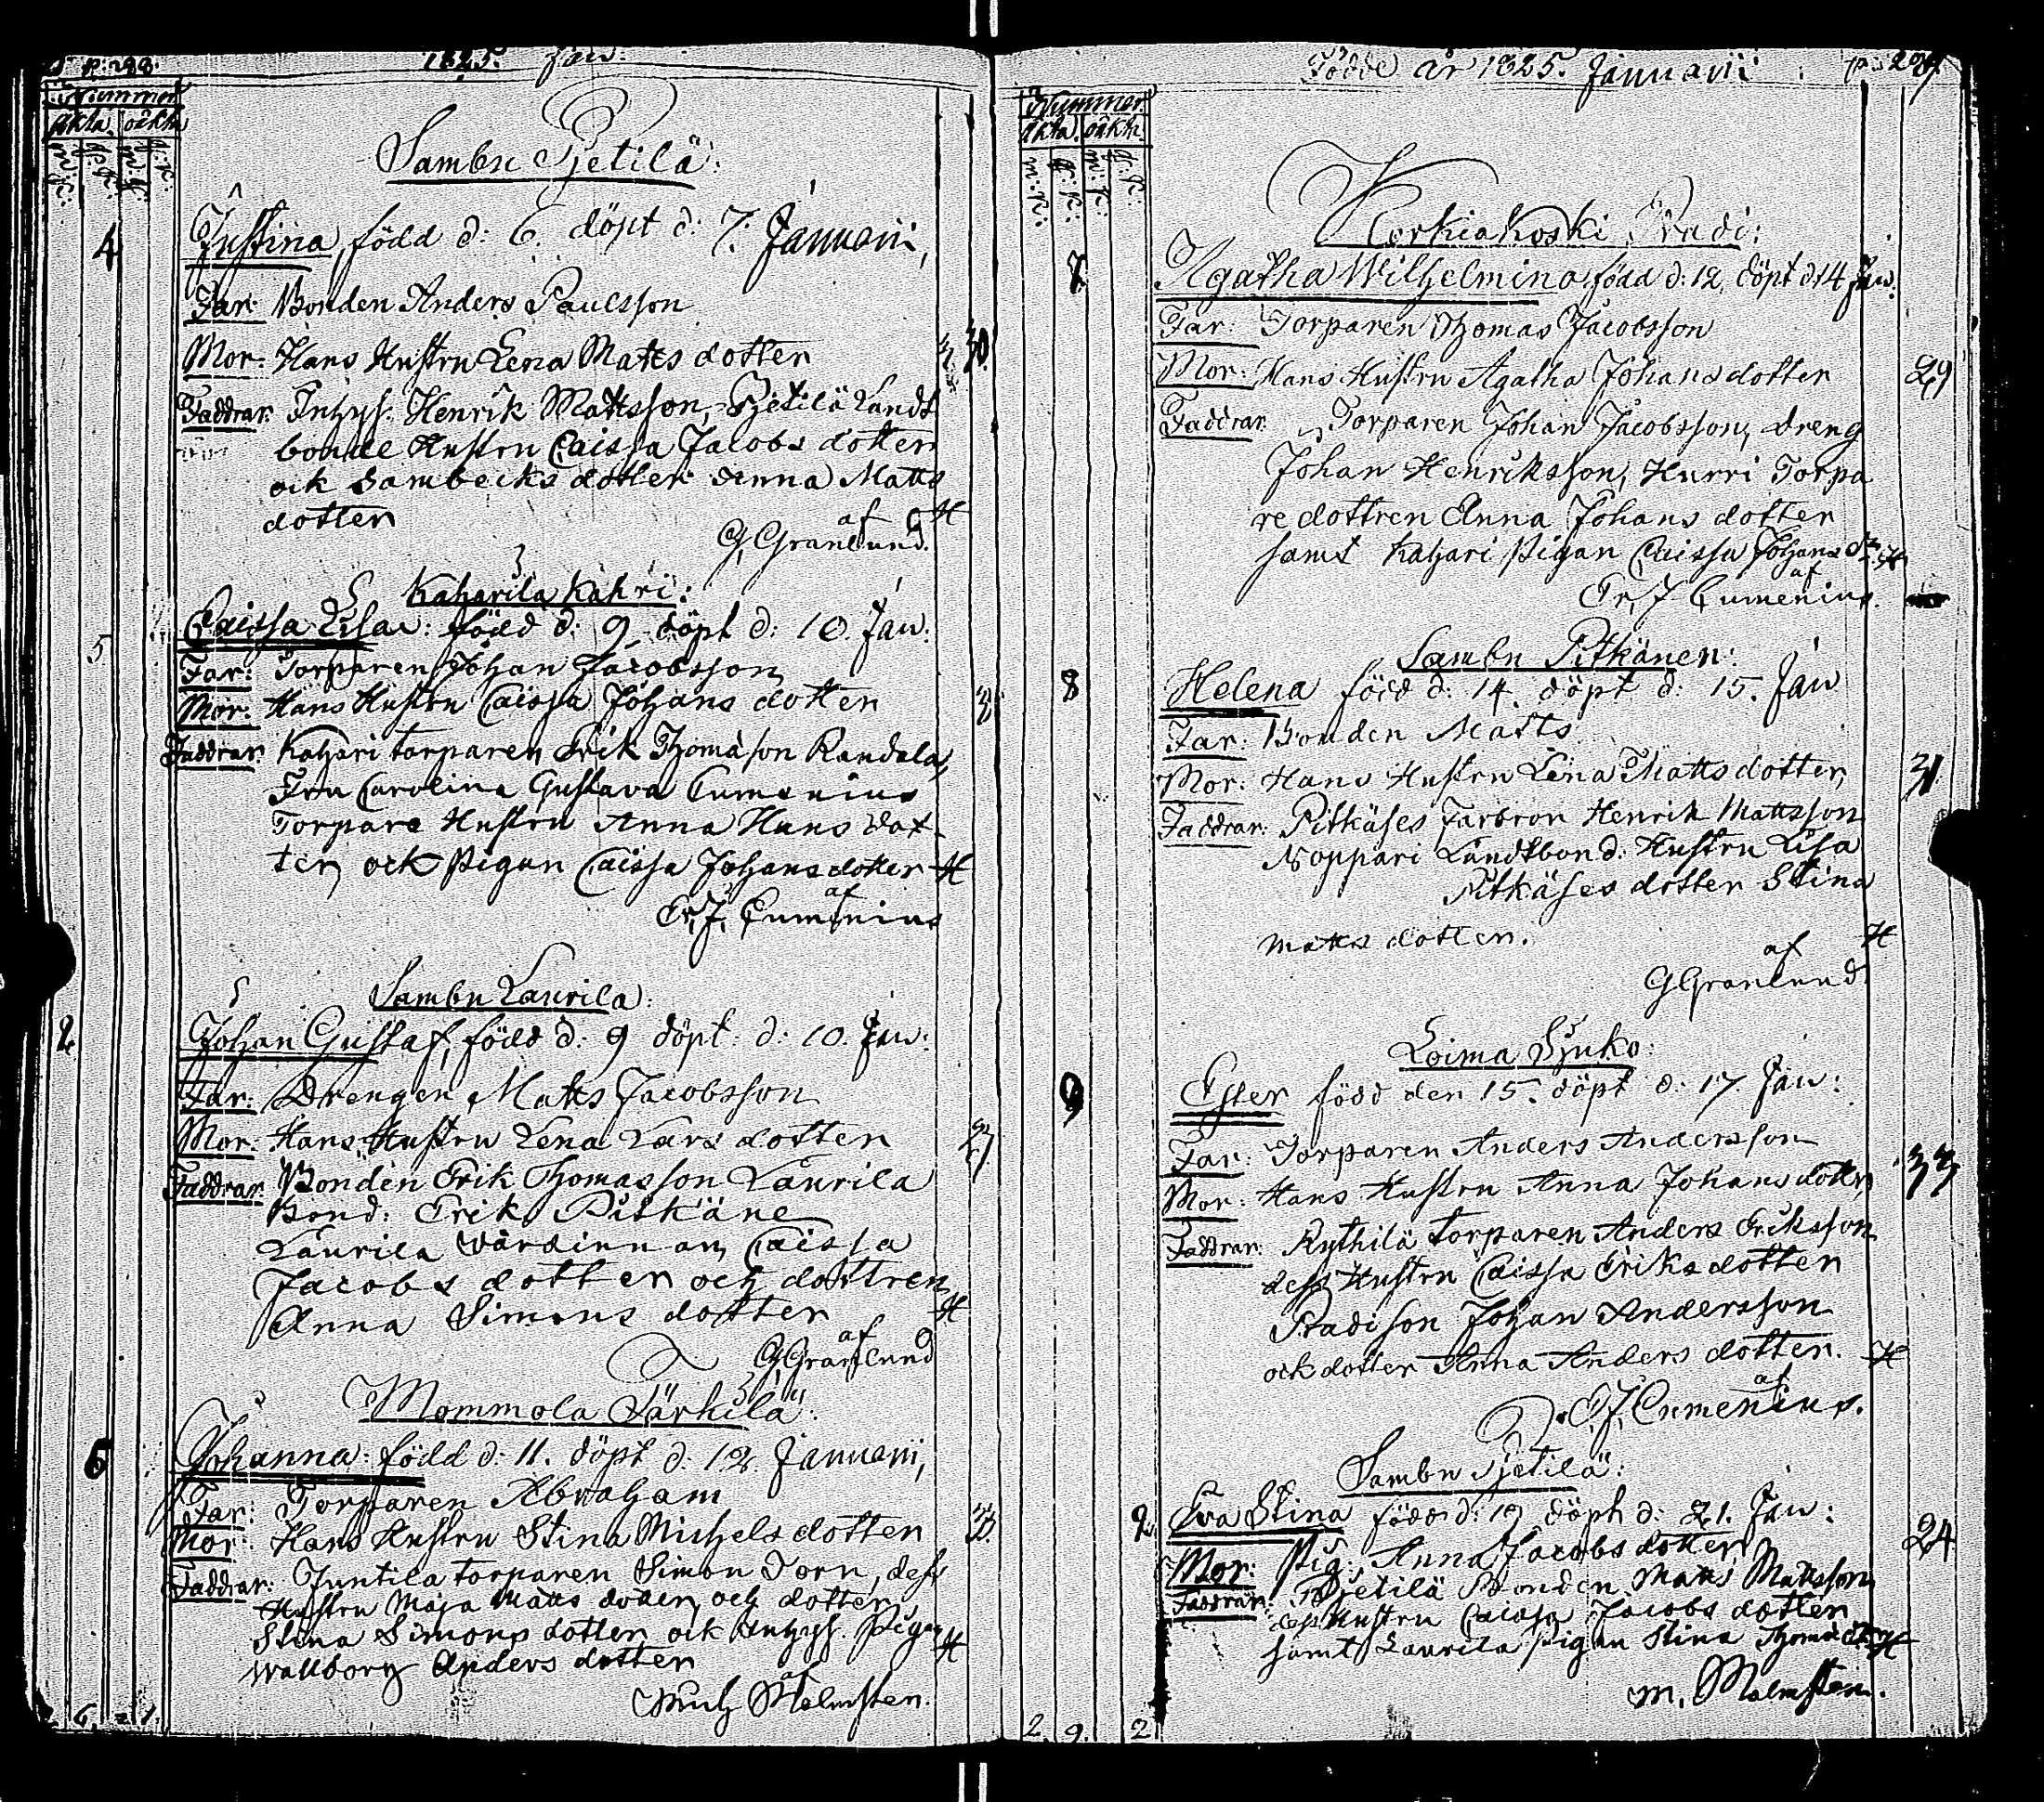 p: 288.
1825. Jan:
Nummer
äkta. oäkta
m:k: q:k: m:k: q:k:
Sambu Pietilä:
4 Justina, född d: 6. döpt d: 7. Januarii,
Far: Bonden Anders Paulsson
Mor: Hans Hustru Lena Matts dotter 30.
Faddrar: Inhys. Henrik Mattsson, Pietilä Landt
bonde Hustru Caissa Jacobs dotter
ock Sambecks dotter Anna Matts
dotter H
af
G, Granlund.
Kaharila Kahri:
5 Caissa Lisa: född d: 9 döpt d: 10. Jan:
Far: Torparen Johan Jacobsson
Mor: Hans Hustru Caissa Johans dotter
Faddrar: Kahari torparen Erik Thomason Randala,
Fru Carolina Gustava Cumenius
Torpare Hustru Anna Hans dot-
ter, ock Pigan Caissa Johans dotter H
af
Er, J, Cumenius
Sambu Laurila:
2 Johan Gustaf, född d: 9 döpt: d: 10. Jan:
Far: Drengen Matts Jacobsson
Mor: Hans Hustru Lena Lars dotter 27
Faddrar: Bonden Erik Thomasson Laurila
Bond: Erik Pitkäne
Laurila värdinnan, Caissa
Jacobs dotter och dottren
Anna Simons dotter H
af
G Granlund
Mommola Särkilä:
6 Johanna: född d: 11. döpt d: 12. Januarii,
Far: Torparen Abraham
Mor: Hans Hustru Stina Michels dotter
Faddrar: Juntila torparen Simon Dorn, dess
Hustru Maja Matts dotter, och dotter
Stina Simons dotter ock Inhys. Pigan
Wallborg Anders dotter H
af
Mich Malmsten.
6 1
Födde år 1825. Januarii
Nummer
äkta. oäkta
m:k: q:k: m:k: q:k:
Korkiakoski Pradi:
7 Agatha Wilhelmina, född d: 12, döpt d: 14 Jan:
Far: Torparen Thomas Jacobsson
Mor: Hans Hustru Agatha Johans dotter 29
Faddrar: Torparen Johan Jacobsson, dreng
Johan Henriksson, Hurri Torpa
re dottren Anna Johans dotter
samt Kahari Pigan Caissa Johans dr. H
af
Er, J Cumenius.
Sambu Pitkänen:
8 Helena född d: 14 döpt d: 15. Jan
Far: Bonden Matts
Mor: Hans Hustru Lena Matts dotter, 31
Faddrar: Pitkäses Farbror Henrik Mattsson
Noppari Landtbond: Hustru Lisa
Pitkäses dotter Stina
Matts dotter. H
af
G Granlund
Loima Sjuko:
9 Ester född den 15. döpt d: 17. Jan:
Far: Torparen Anders Andersson
Mor: Hans Hustru Anna Johans dotter, 33
Faddrar: Kythilä torparen Anders Eriksson
dess Hustru Caissa Eriks dotter
Pradi son Johan Andersson
ock dotter Anna Anders dotter. H
af
E, J, Cumenius.
Sambu Pjetilä:
2 Eva Stina född d: 19 döpt d: 21. Jan: 24
Mor: Pig: Anna Jacobs dotter
Faddrar: Pjetilä Bonden Matts Mattsson
dess Hustru Caissa Jacobs dotter
samt Laurila pigan Stina Thomæ dr. H
M, Malmsten.
2 9 2